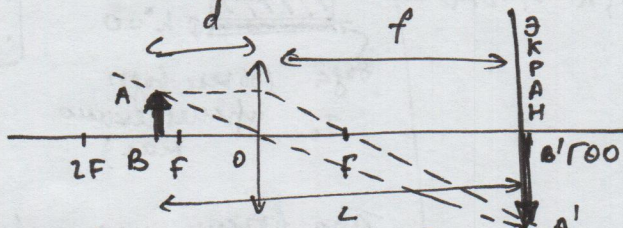 d
f
ЭКРАН
A
2F B F O F B' ГОО
L
A'